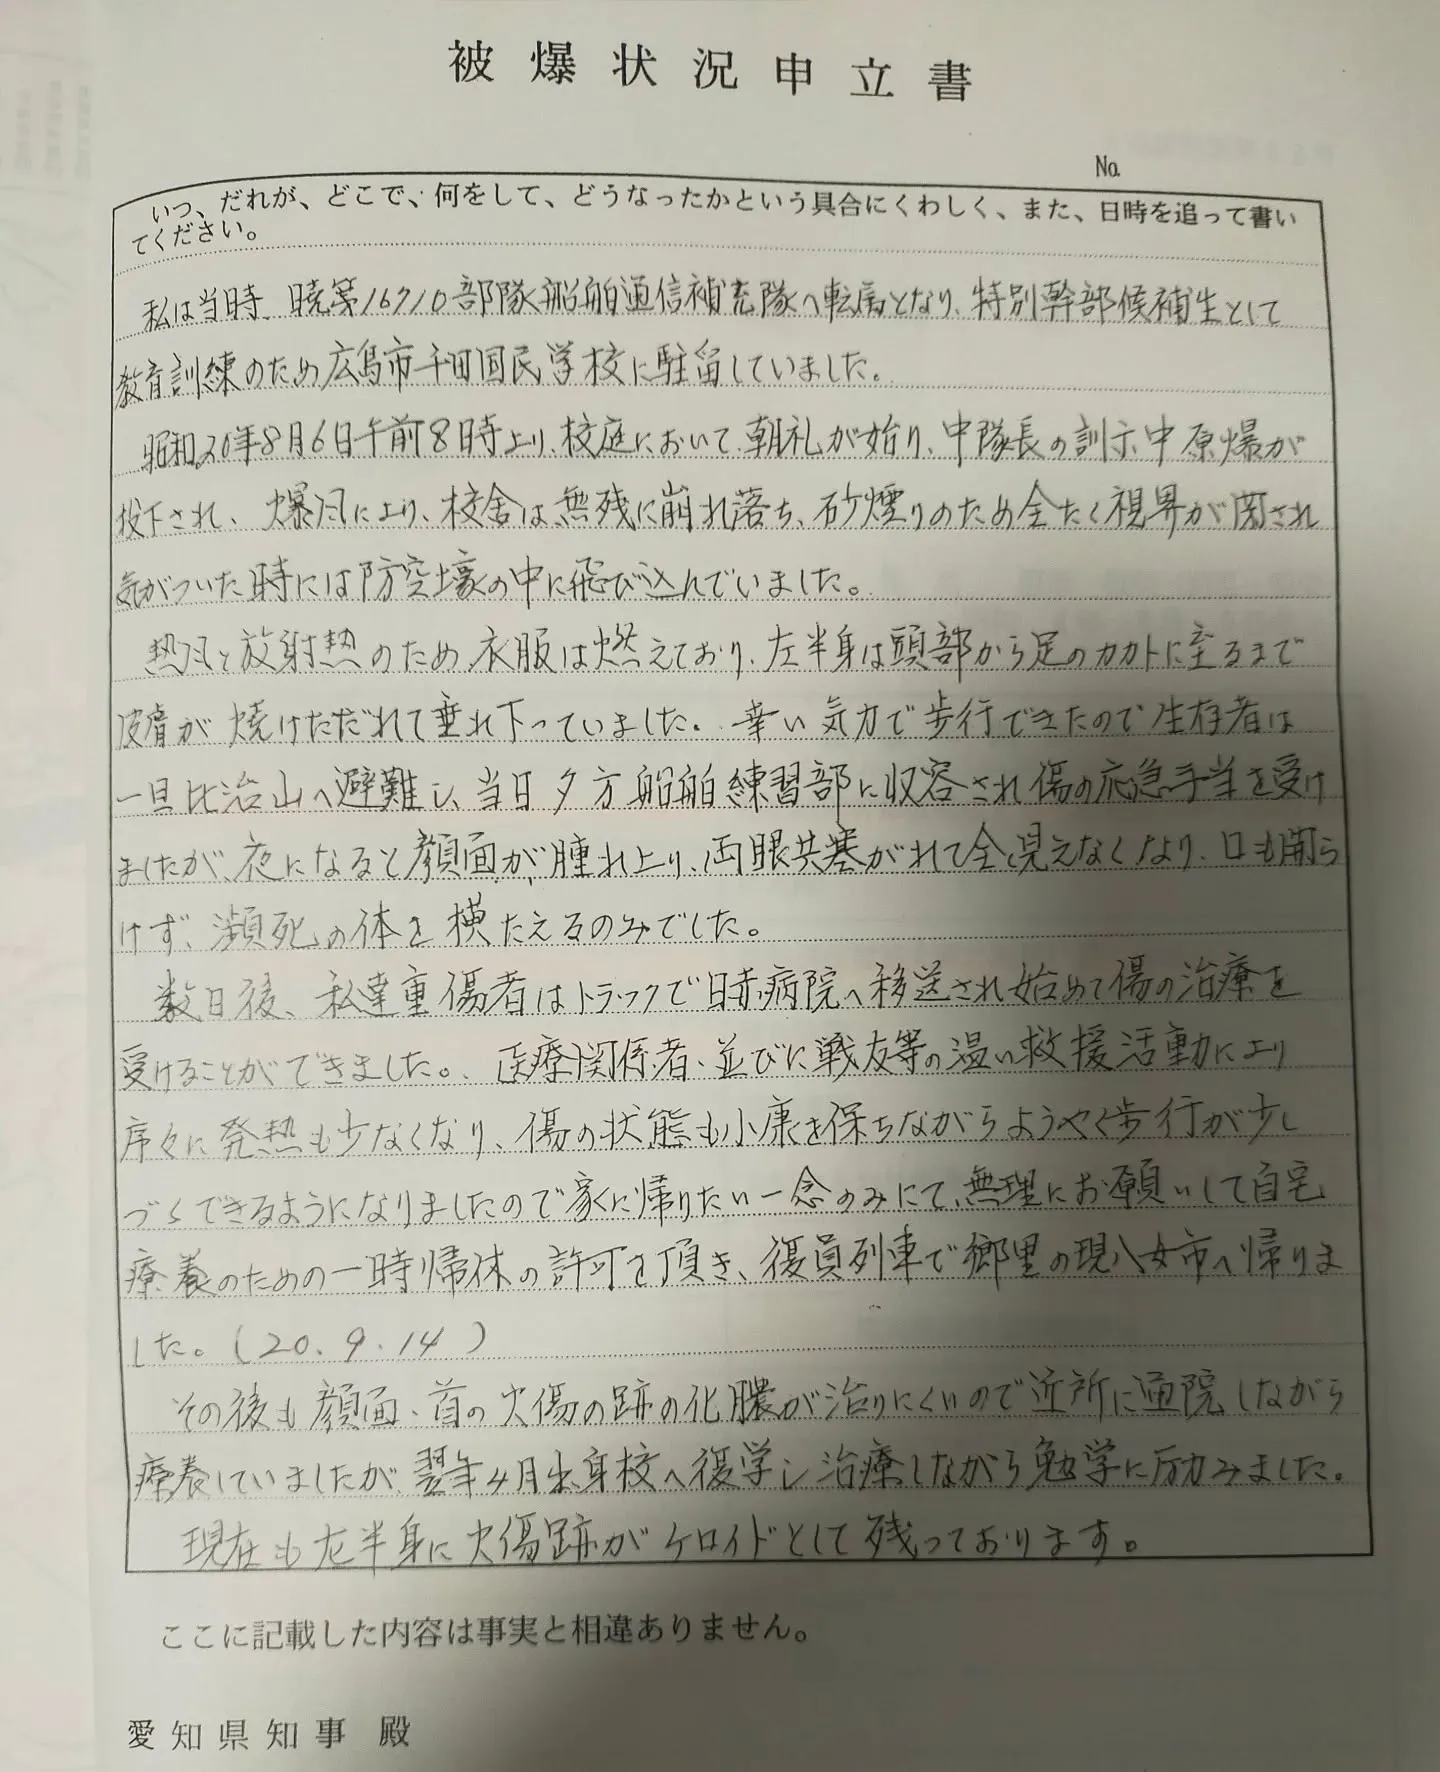 被爆状況申立書
No.
いつ、だれが、どこで、何をして、どうなったかという具合にくわしく、また、日時を追って書い
てください。
私は当時、暁第16710部隊船舶通信補充隊へ転属となり、特別幹部候補生として
教育訓練のため広島市千田国民学校に駐留していました。
昭和20年8月6日午前8時より、校庭において朝礼が始り、中隊長の訓示中原爆が
投下され、爆風により、校舎は無残に崩れ落ち、砂煙りのため全たく視界が閉され
気がついた時には防空壕の中に飛び込んでいました。
熱風と放射熱のため衣服は燃えており、左半身は頭部から足のカカトに至るまで
皮膚が焼けただれて垂れ下っていました。幸い気力で歩行できたので生存者は
一旦比治山へ避難し、当日夕方船舶練習部に収容され傷の応急手当を受け
ましたが、夜になると顔面が腫れ上り、両眼共塞がれて全く見えなくなり、口も開ら
けず、瀕死の体を横たえるのみでした。
数日後、私達重傷者はトラックで日赤病院へ移送され始めて傷の治療を
受けることができました。医療関係者、並びに戦友等の温い救援活動により
序々に発熱も少なくなり、傷の状態も小康を保ちながらようやく歩行が少し
づゝできるようになりましたので家に帰りたい一念のみにて、無理にお願いして自宅
療養のための一時帰休の許可を頂き、復員列車で郷里の現八女市へ帰りま
した。(20.9.14)
その後も顔面、首の火傷の跡の化膿が治りにくいので近所に通院しながら
療養していましたが、翌年4月出身校へ復学し治療しながら勉学に励みました。
現在も左半身に火傷跡がケロイドとして残っております。
ここに記載した内容は事実と相違ありません。
愛知県知事 殿